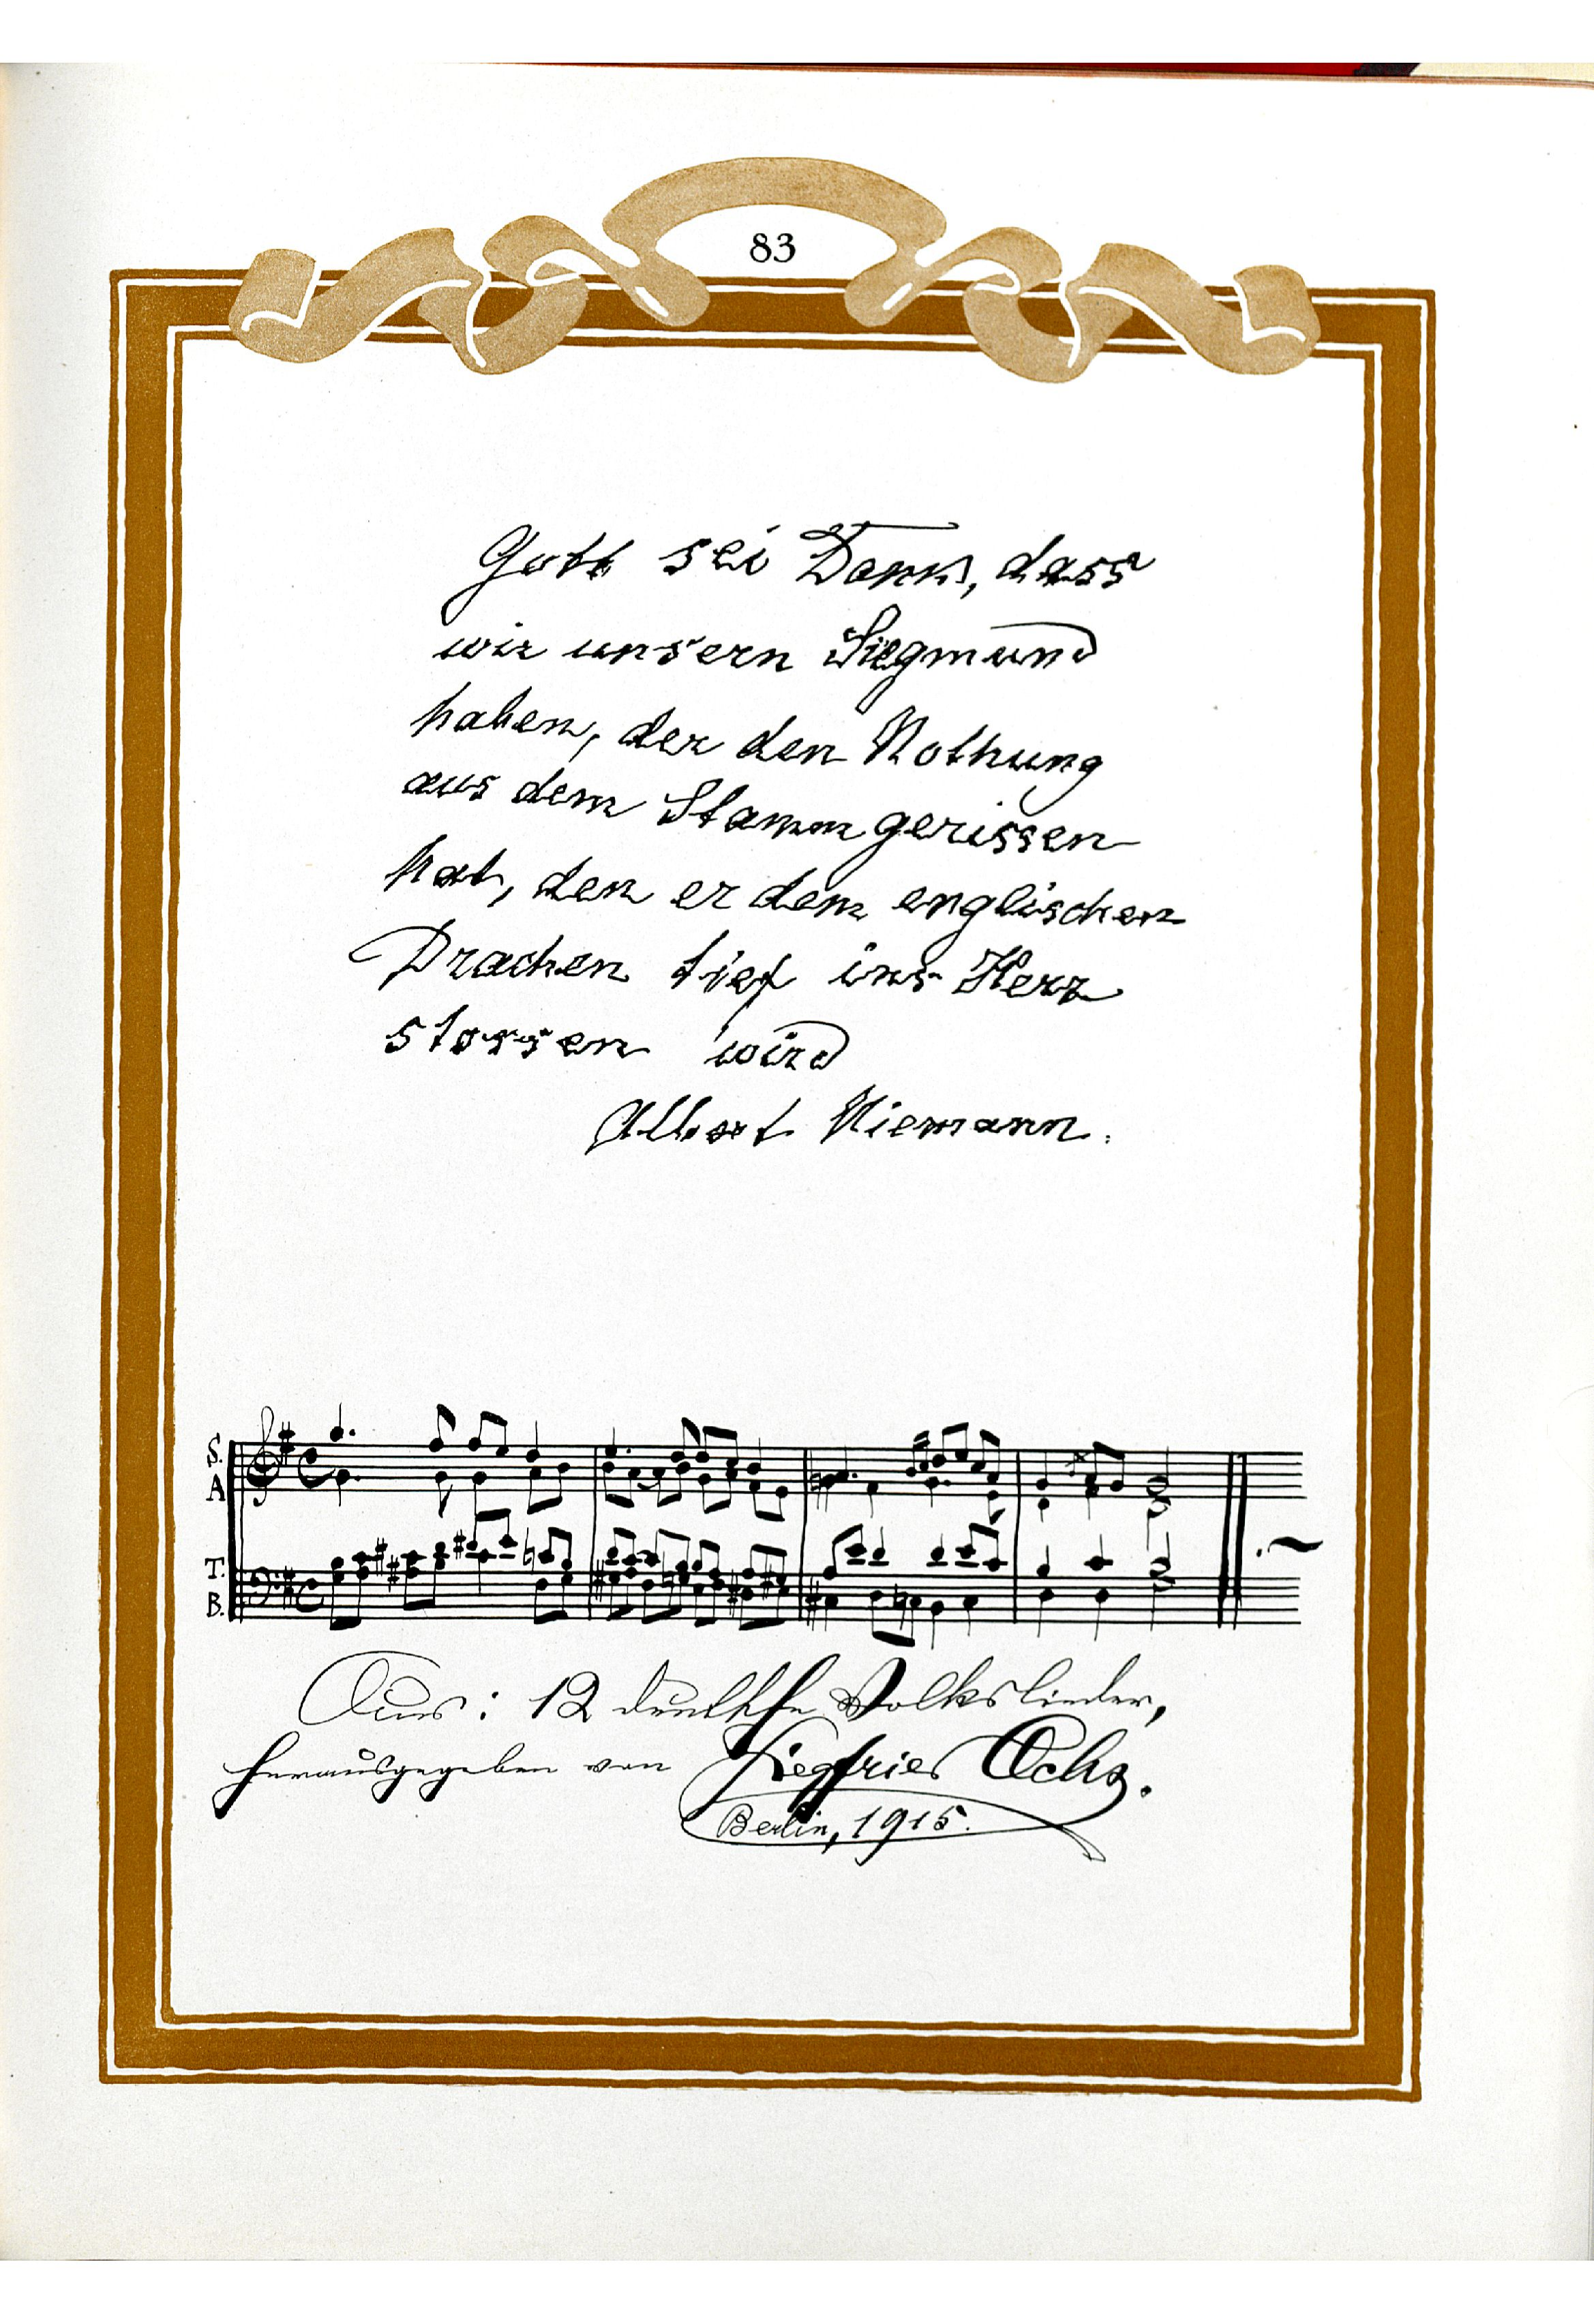 83
Gott sei Dank, dass
wir unsern Siegmund
haben, der den Nothung
aus dem Stamm gerissen
hat, den er dem englischen
Drachen tief ins Herz
stossen wird
Albert Niemann.
S.
A
T.
B.
Aus: 12 deutsche Volkslieder,
herausgegeben von Siegfried Ochs.
Berlin, 1915.